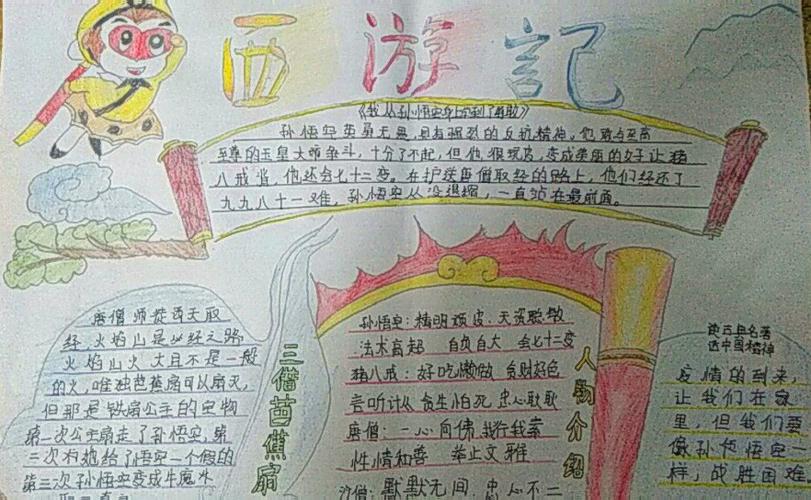 西游記
《我从孙悟空身上学到了勇敢》
孙悟空英勇无畏,具有强烈的反抗精神。他敢与至高
至尊的玉皇大帝争斗,十分了不起,但他很玩皮,变成美丽的女子让猪
八戒背,他还会七十二变。在护送唐僧取经的路上,他们经还了
九九八十一难,孙悟空从没退缩,一直站在最前面。
唐僧师徒西天取
经,火焰山是必经之路
火焰山火大且不是一般
的火,唯独芭蕉扇可以扇灭,
但那是铁扇公主的宝物
第一次公主扇走了孙悟空,第
二次 给了悟空一个假的
第三次孙悟空变成牛魔
三借芭蕉扇
孙悟空:精明顽皮、天资聪敏
法术高超 自负自大 会七十二变
猪八戒:好吃懒做 贪财好色
言听计从 贪生怕死 忠心耿耿
唐僧:一心向佛 我行我素
性情和善 举止文雅
沙僧:默默无闻、忠心不二
人物介绍
读古典名著
选中国精神
疫情的到来,
让我们在家
里,但我们要
像孙悟空一
样,战胜困难